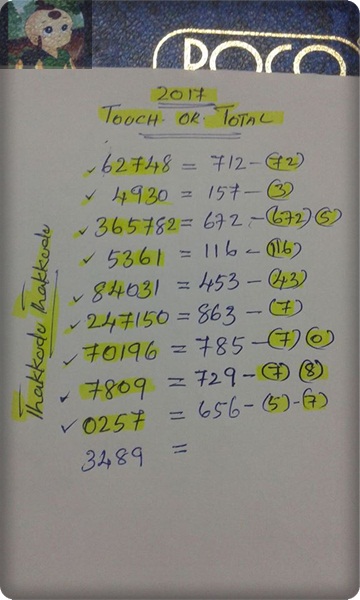 POCO
2017
TOUCH OR TOTAL
✓ 62748 = 712 - (72)
✓ 4930 = 157 - (3)
✓ 365782 = 672 - (672) (5)
✓ 5361 = 116 - (116)
✓ 84031 = 453 - (43)
✓ 247150 = 863 - (7)
✓ 70196 = 785 - (7) (0)
✓ 7809 = 729 - (7) (8)
✓ 0257 = 656 - (5) - (7)
3489 =
Thakkadu Thakkadu